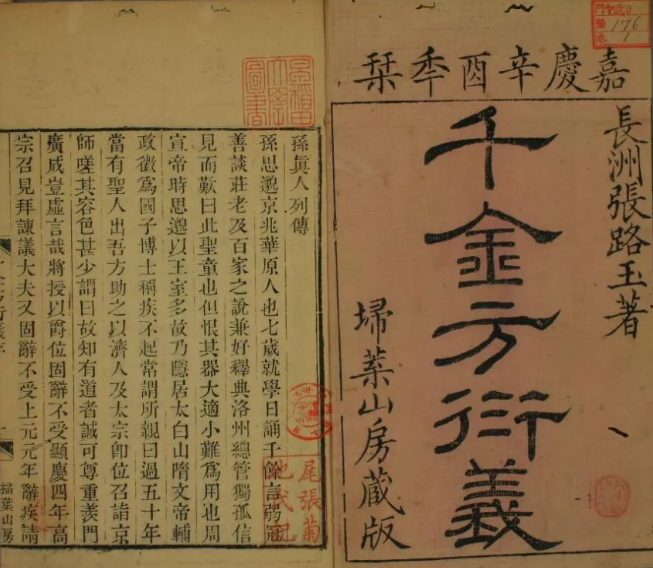 嘉慶辛酉秊栞
長洲張路玉著
千金方衍義
埽葉山房藏版
176
1
早稻田大學圖書
孫眞人列傳
孫思邈京兆華原人也七歲就學日誦千餘言弱冠
善談莊老及百家之說兼好釋典洛州總管獨孤信
見而歎曰此聖童也但恨其器大適小難爲用也周
宣帝時思邈以王室多故乃隱居太白山隋文帝輔
政徵爲國子博士稱疾不起常謂所親曰過五十年
當有聖人出吾方助之以濟人及太宗卽位召詣京
師嗟其容色甚少謂曰故知有道者誠可尊重羨門
廣成豈虛言哉將授以爵位固辭不受顯慶四年高
宗召見拜諫議大夫又固辭不受上元元年辭疾請
掃葉山房
尾張菊